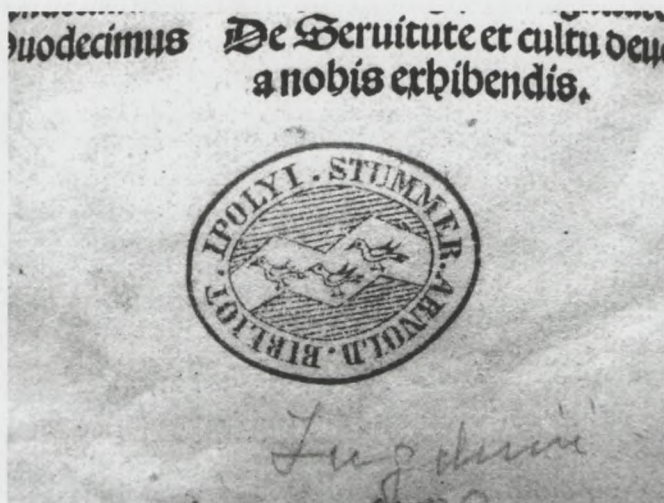 Duodecimus De Seruitute et cultu deu
a nobis exhibendis.
IPOLYI. STUMMER. ARNOLD. BIBLIOT.
Lugduni